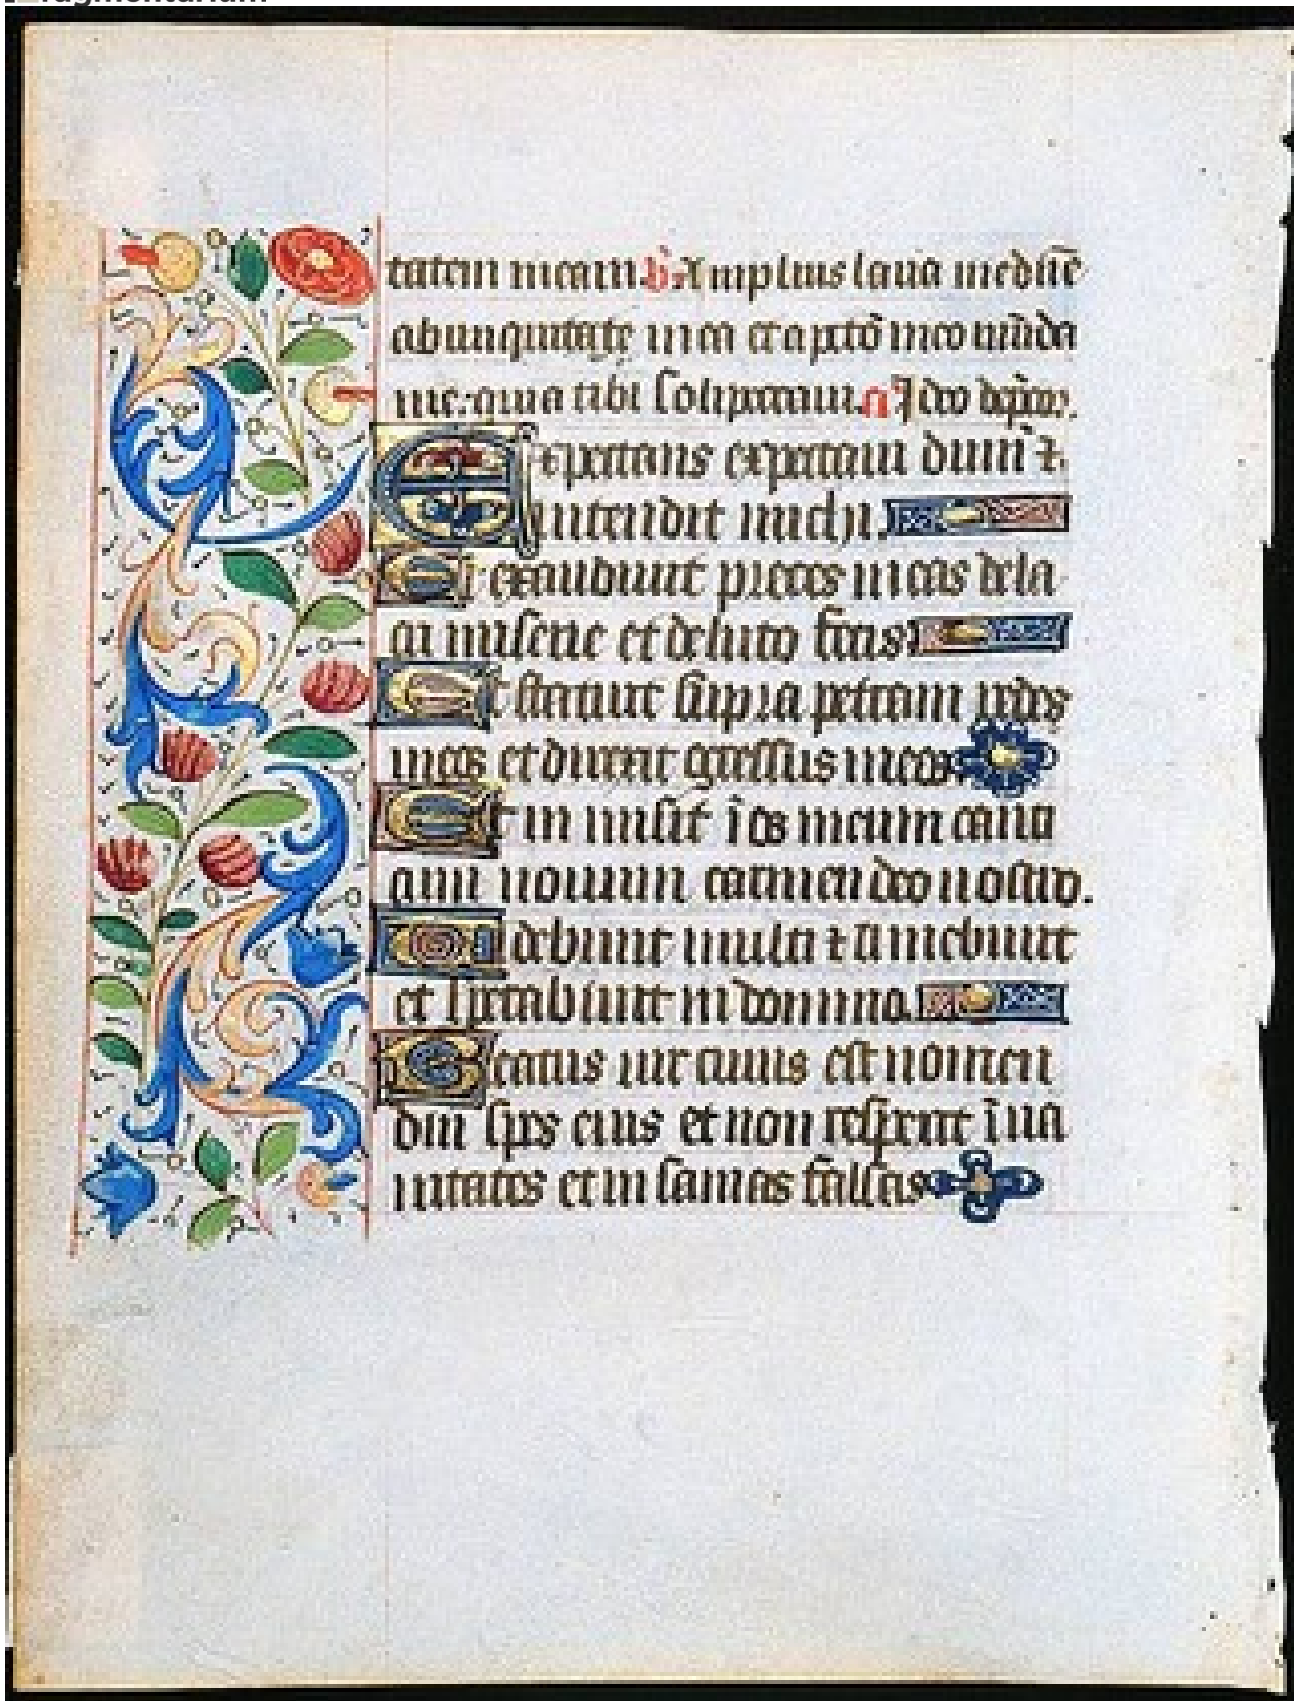 tatem meam ℣. Amplius laua me dn̄e
ab iniquitate mea et a pctō meo mūda
me. quia tibi soli peccaui. a Ideo dn̄e.
Expectans expectaui dum̄ ⁊
intendit michi.
Et exaudiuit preces meas de la
cu miserie et de luto fecis
Et statuit supra petram pedes
meos et direxit gressus meos
Et in misit ī os meum canti
cum nouum carmen deo nostro.
Uidebunt multi ⁊ timebunt
et sperabunt in domino.
Beatus uir cuius est nomen
dn̄i spes eius et non respexit ī ua
nitates et in sanias falsas